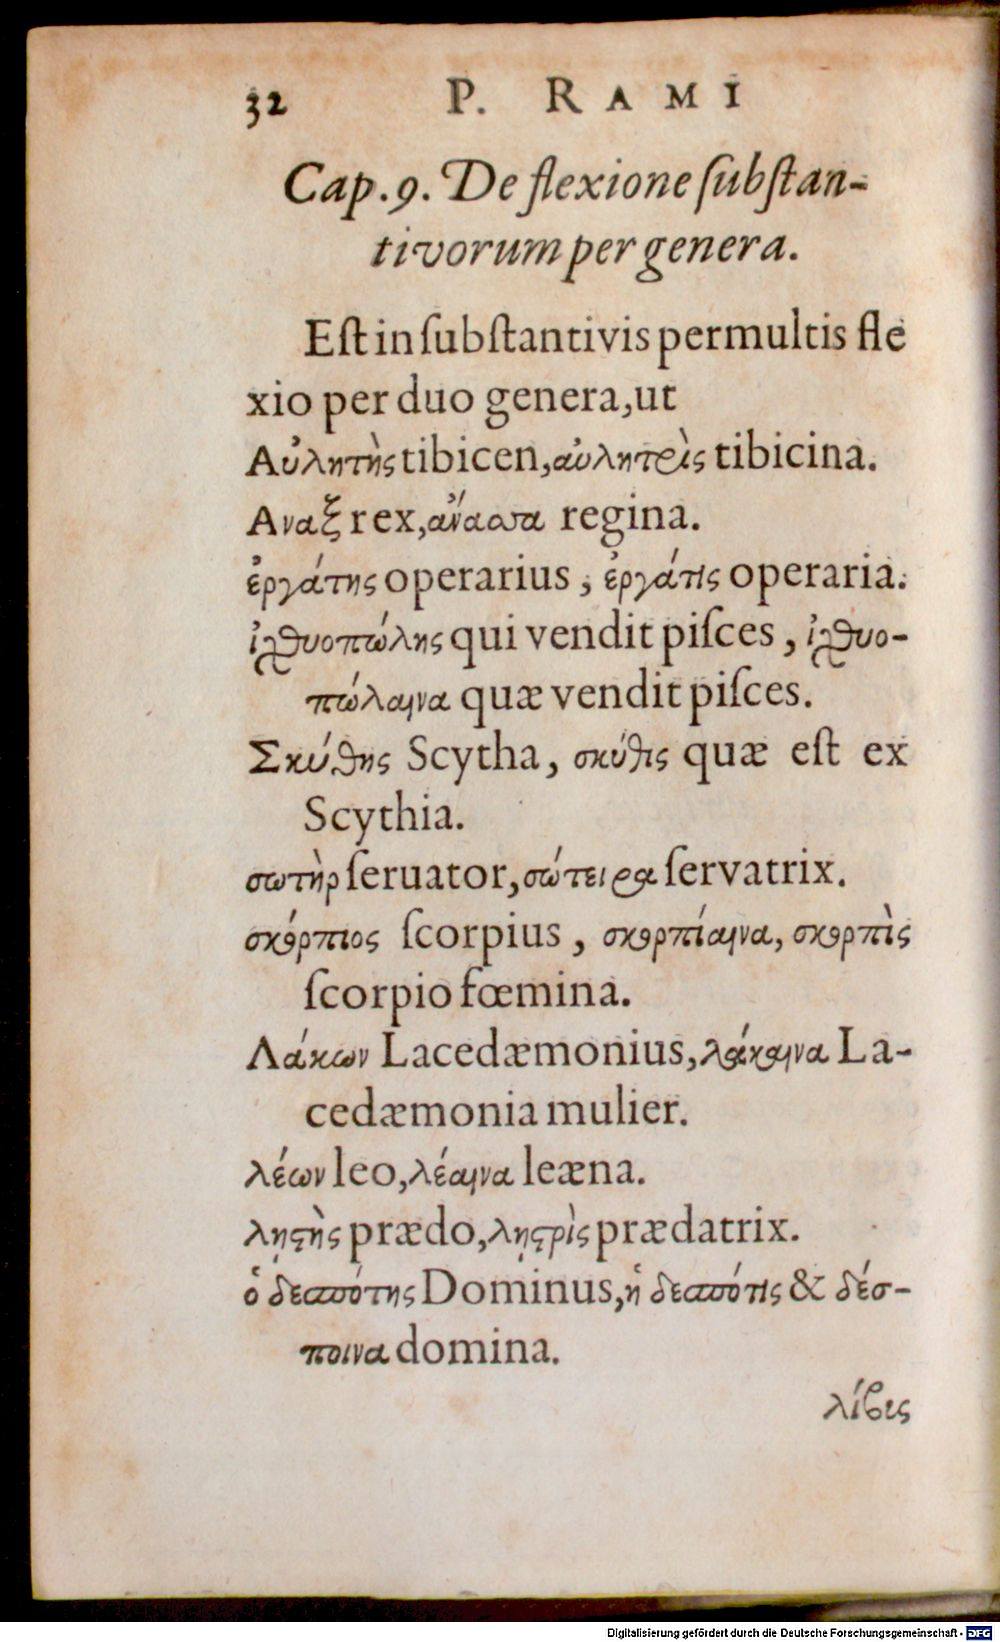 32 P. RAMI
Cap. 9. De flexione ſubſtan-
tivorum per genera.
Eſt in ſubſtantivis permultis fle
xio per duo genera, ut
Αὐλητὴς tibicen, αὐλητρὶς tibicina.
Αναξ rex, ἄνασσα regina.
ἐργάτης operarius, ἐργάτις operaria.
ἰχθυοπώλης qui vendit piſces, ἰχθυο-
πώλαινα quæ vendit piſces.
Σκύθης Scytha, σκύθις quæ eſt ex
Scythia.
σωτὴρ ſeruator, σώτειρα ſervatrix.
σκόρπιος ſcorpius, σκορπίαινα, σκορπὶς
ſcorpio fœmina.
Λάκων Lacedæmonius, λάκαινα La-
cedæmonia mulier.
λέων leo, λέαινα leæna.
λῃϛὴς prædo, λῃϛρὶς prædatrix.
ὁ δεσπότης Dominus, ἡ δεσπότις & δέσ-
ποινα domina.
λίβυς
Digitalisierung gefördert durch die Deutsche Forschungsgemeinschaft - DFG